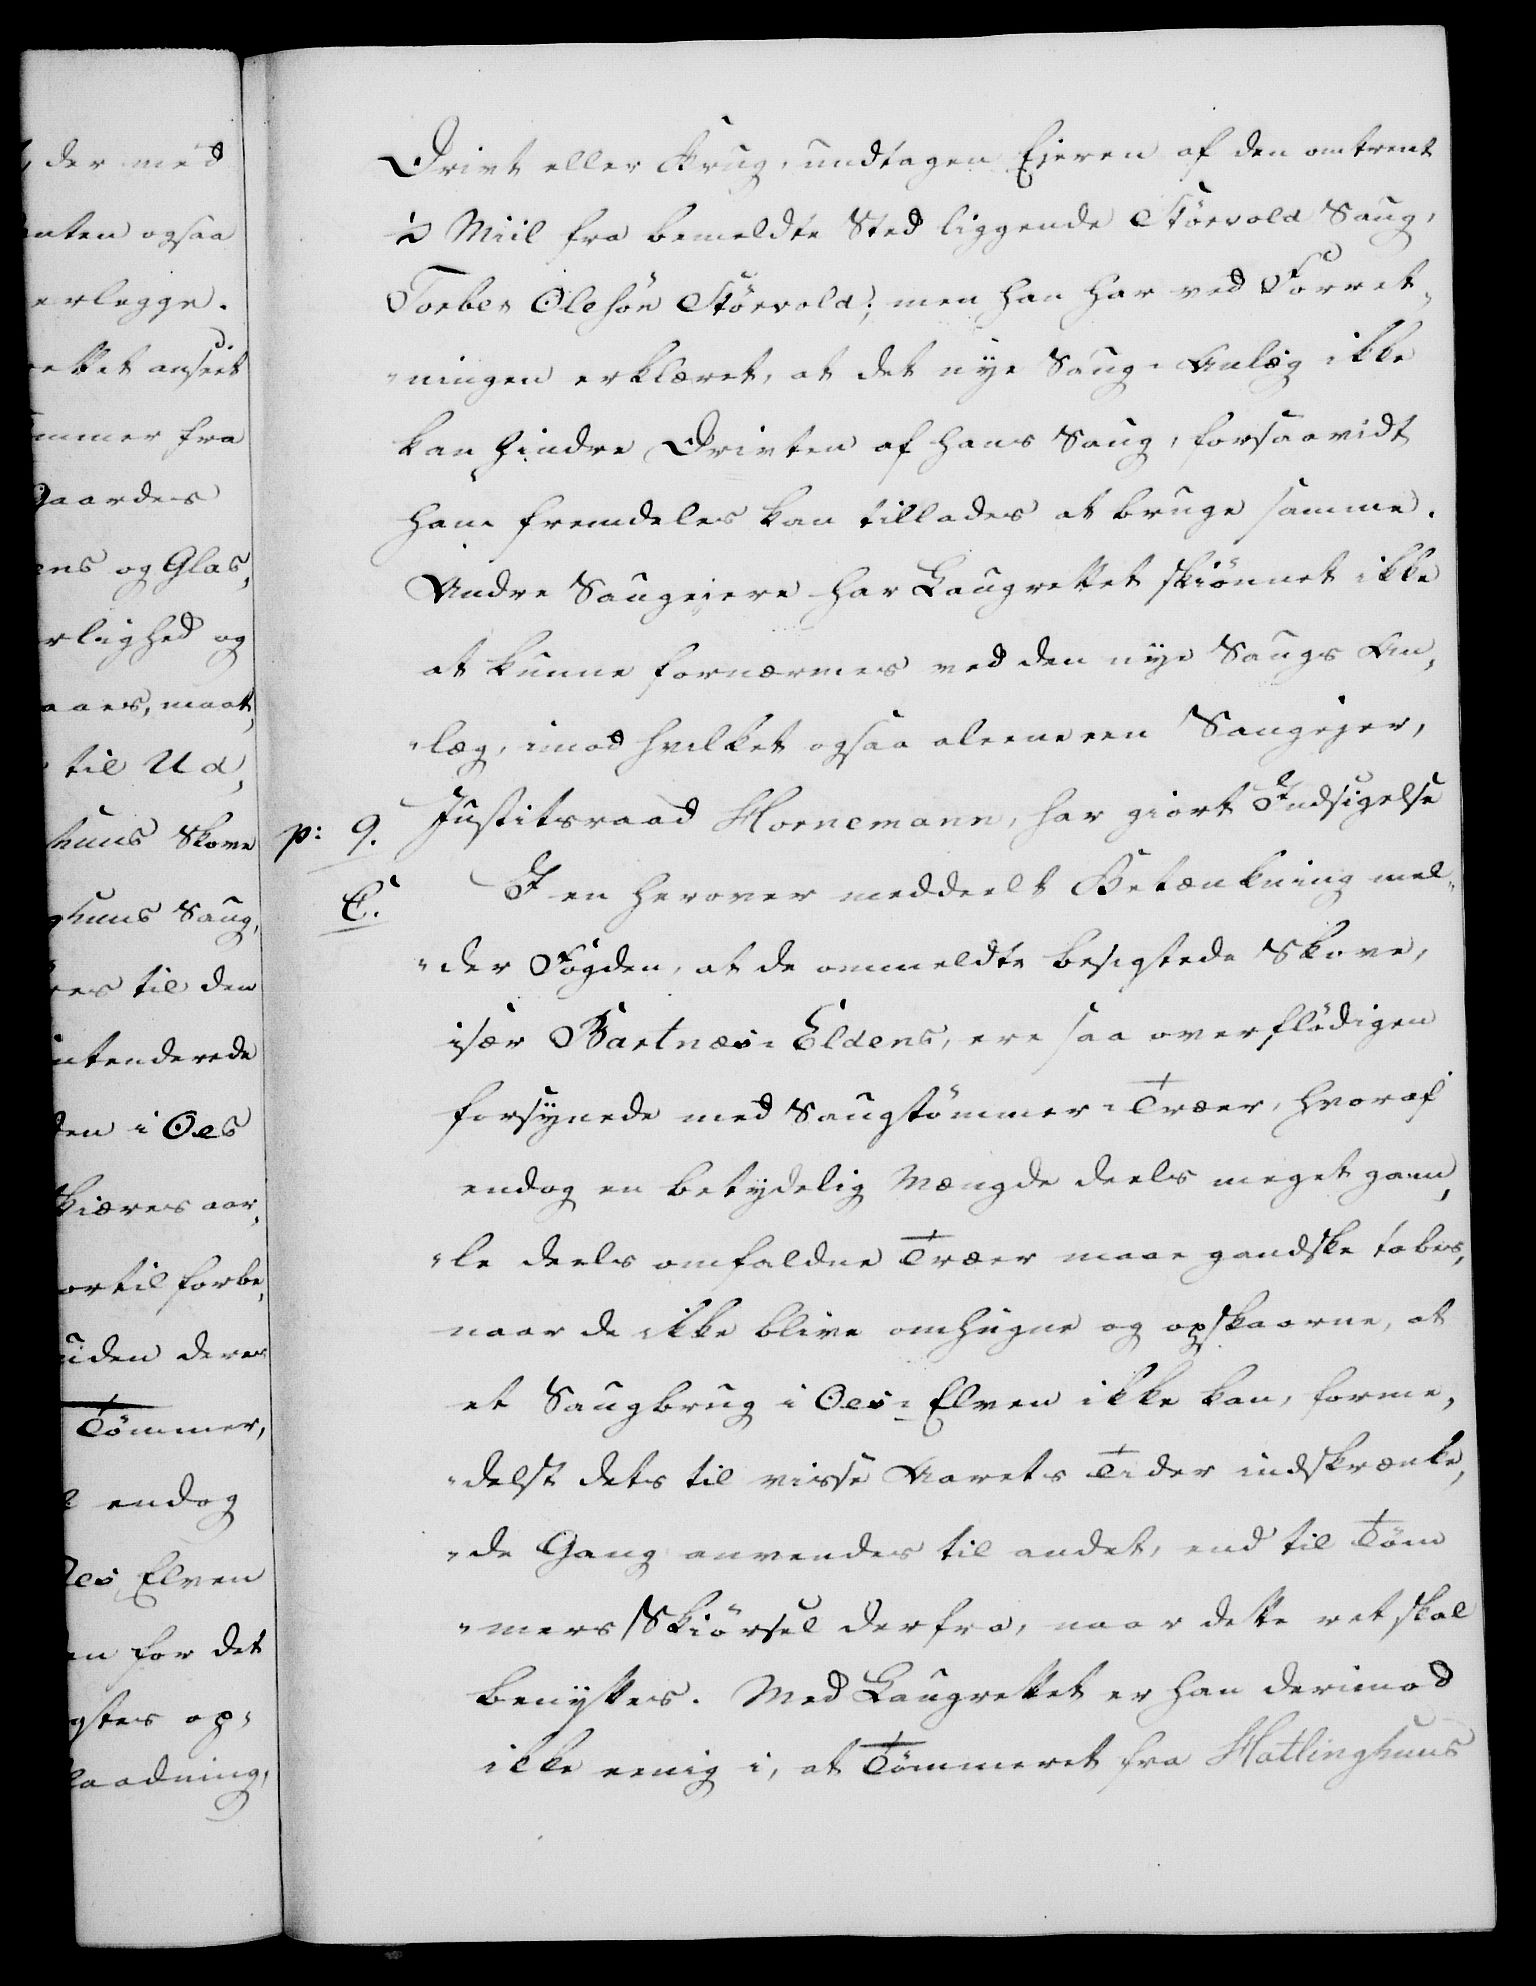 der med
nten ogsaa
erlegge.
ettet anseet
ømmer fra
Gaardes
ens og Glas,
rlighed og
aaes, maat,
til Ud,
huus Skove
ghuus Saug,
res til den
ntenderede
ten i Oes
skiæres aar,
ortil forbe,
uden deres
Tömmer,
endog
Oes Elven
en for det
gtes op,
laadning,
Drivt eller Brug, undtagen Ejeren af den omtrent
½ Miil fra bemeldte Sted liggende Störvold Saug,
Torber Olesön Störvold; men han har ved Forret,
„ningen erklæret, at det nye Saug-Anlæg ikke
kan hindre Drivten af hans Saug, forsaavidt
ham fremdeles kan tillades at bruge samme.
Andre Saugeiere har Laugrettet skiönnet ikke
at kunne fornærmes ved den nye Saugs An,
„læg, imod hvilket ogsaa aleene een Saugejer,
Justitsraad Hornemann, har giort Indsigelse
p: 9.
C.
I en herover meddeelt Betænkning mel,
„der Fogden, at de ommeldte besigtede Skove,
især Bartnæs-Eldens, ere saa overflödigen
forsynede med Saugtömmer-Træer, hvoraf
endog en betydelig Mængde deels meget gam,
„le deels omfaldne Træer maae gandske tabes,
naar de ikke blive omhugne og opskaarne, at
et Saugbrug i Oes-Elven ikke kan, forme,
„delst dets til visse Aarets Tider indskrænke,
„de Gang anvendes til andet, end til Töm
„mers Skiörsel derfra, naar dette ret skal
benyttes. Med Laugrettet er han derimod
ikke eenig i, at Tömmeret fra Hatlinghuus